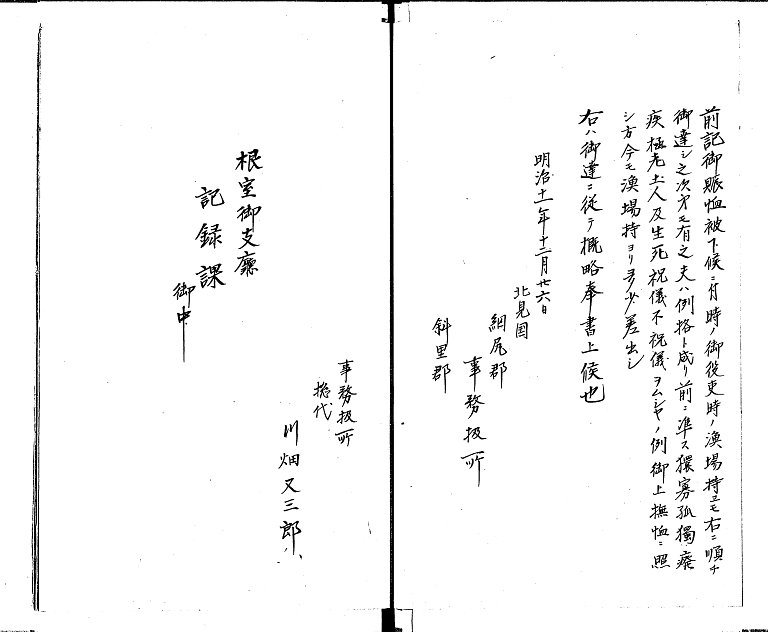 前記御賑恤被下候ニ付時ノ御役吏時ノ漁場持ニモ右ニ順チ
御達シ之次第モ有之夫ハ例格ト成リ前ニ準ス鰥寡孤獨癈
疾極老土人及生死祝儀不祝儀ヲムシヤノ例御上撫恤ニ照
シ方今モ漁場持ヨリ多少差出シ
右ハ御達ニ従テ概略奉書上候也
明治十一年十二月廿六日
北見国
網尻郡
斜里郡
事務扱所
事務扱所
総代
川畑又三郎
根室御支廳
記録課
御中